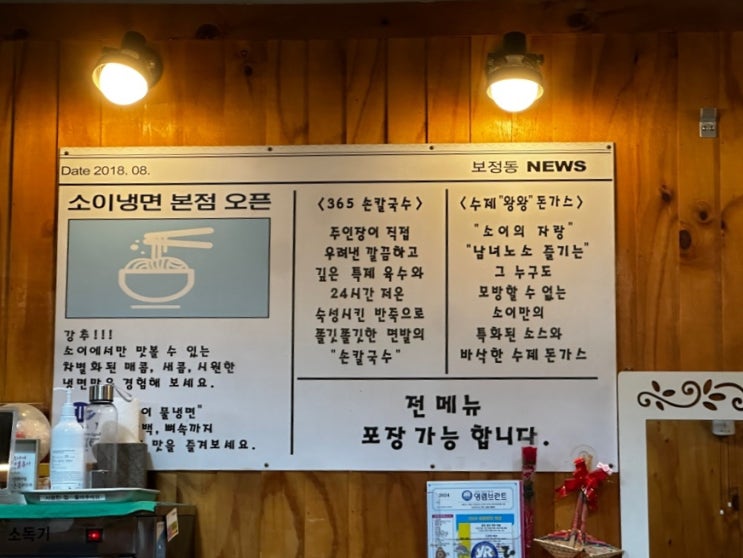 Date 2018. 08.
보정동 NEWS
소이냉면 본점 오픈
강추!!!
소이에서만 맛볼 수 있는
차별화된 매콤, 새콤, 시원한
냉면맛을 경험해 보세요.
이 물냉면"
백, 뼈속까지
맛을 즐겨보세요.
<365 손칼국수>
주인장이 직접
우려낸 깔끔하고
깊은 특제 육수와
24시간 저온
숙성시킨 반죽으로
쫄깃쫄깃한 면발의
"손칼국수"
<수제"왕왕"돈가스>
"소이의 자랑"
"남녀노소 즐기는"
그 누구도
모방할 수 없는
소이만의
특화된 소스와
바삭한 수제 돈가스
전 메뉴
포장 가능 합니다.
소독기
2024